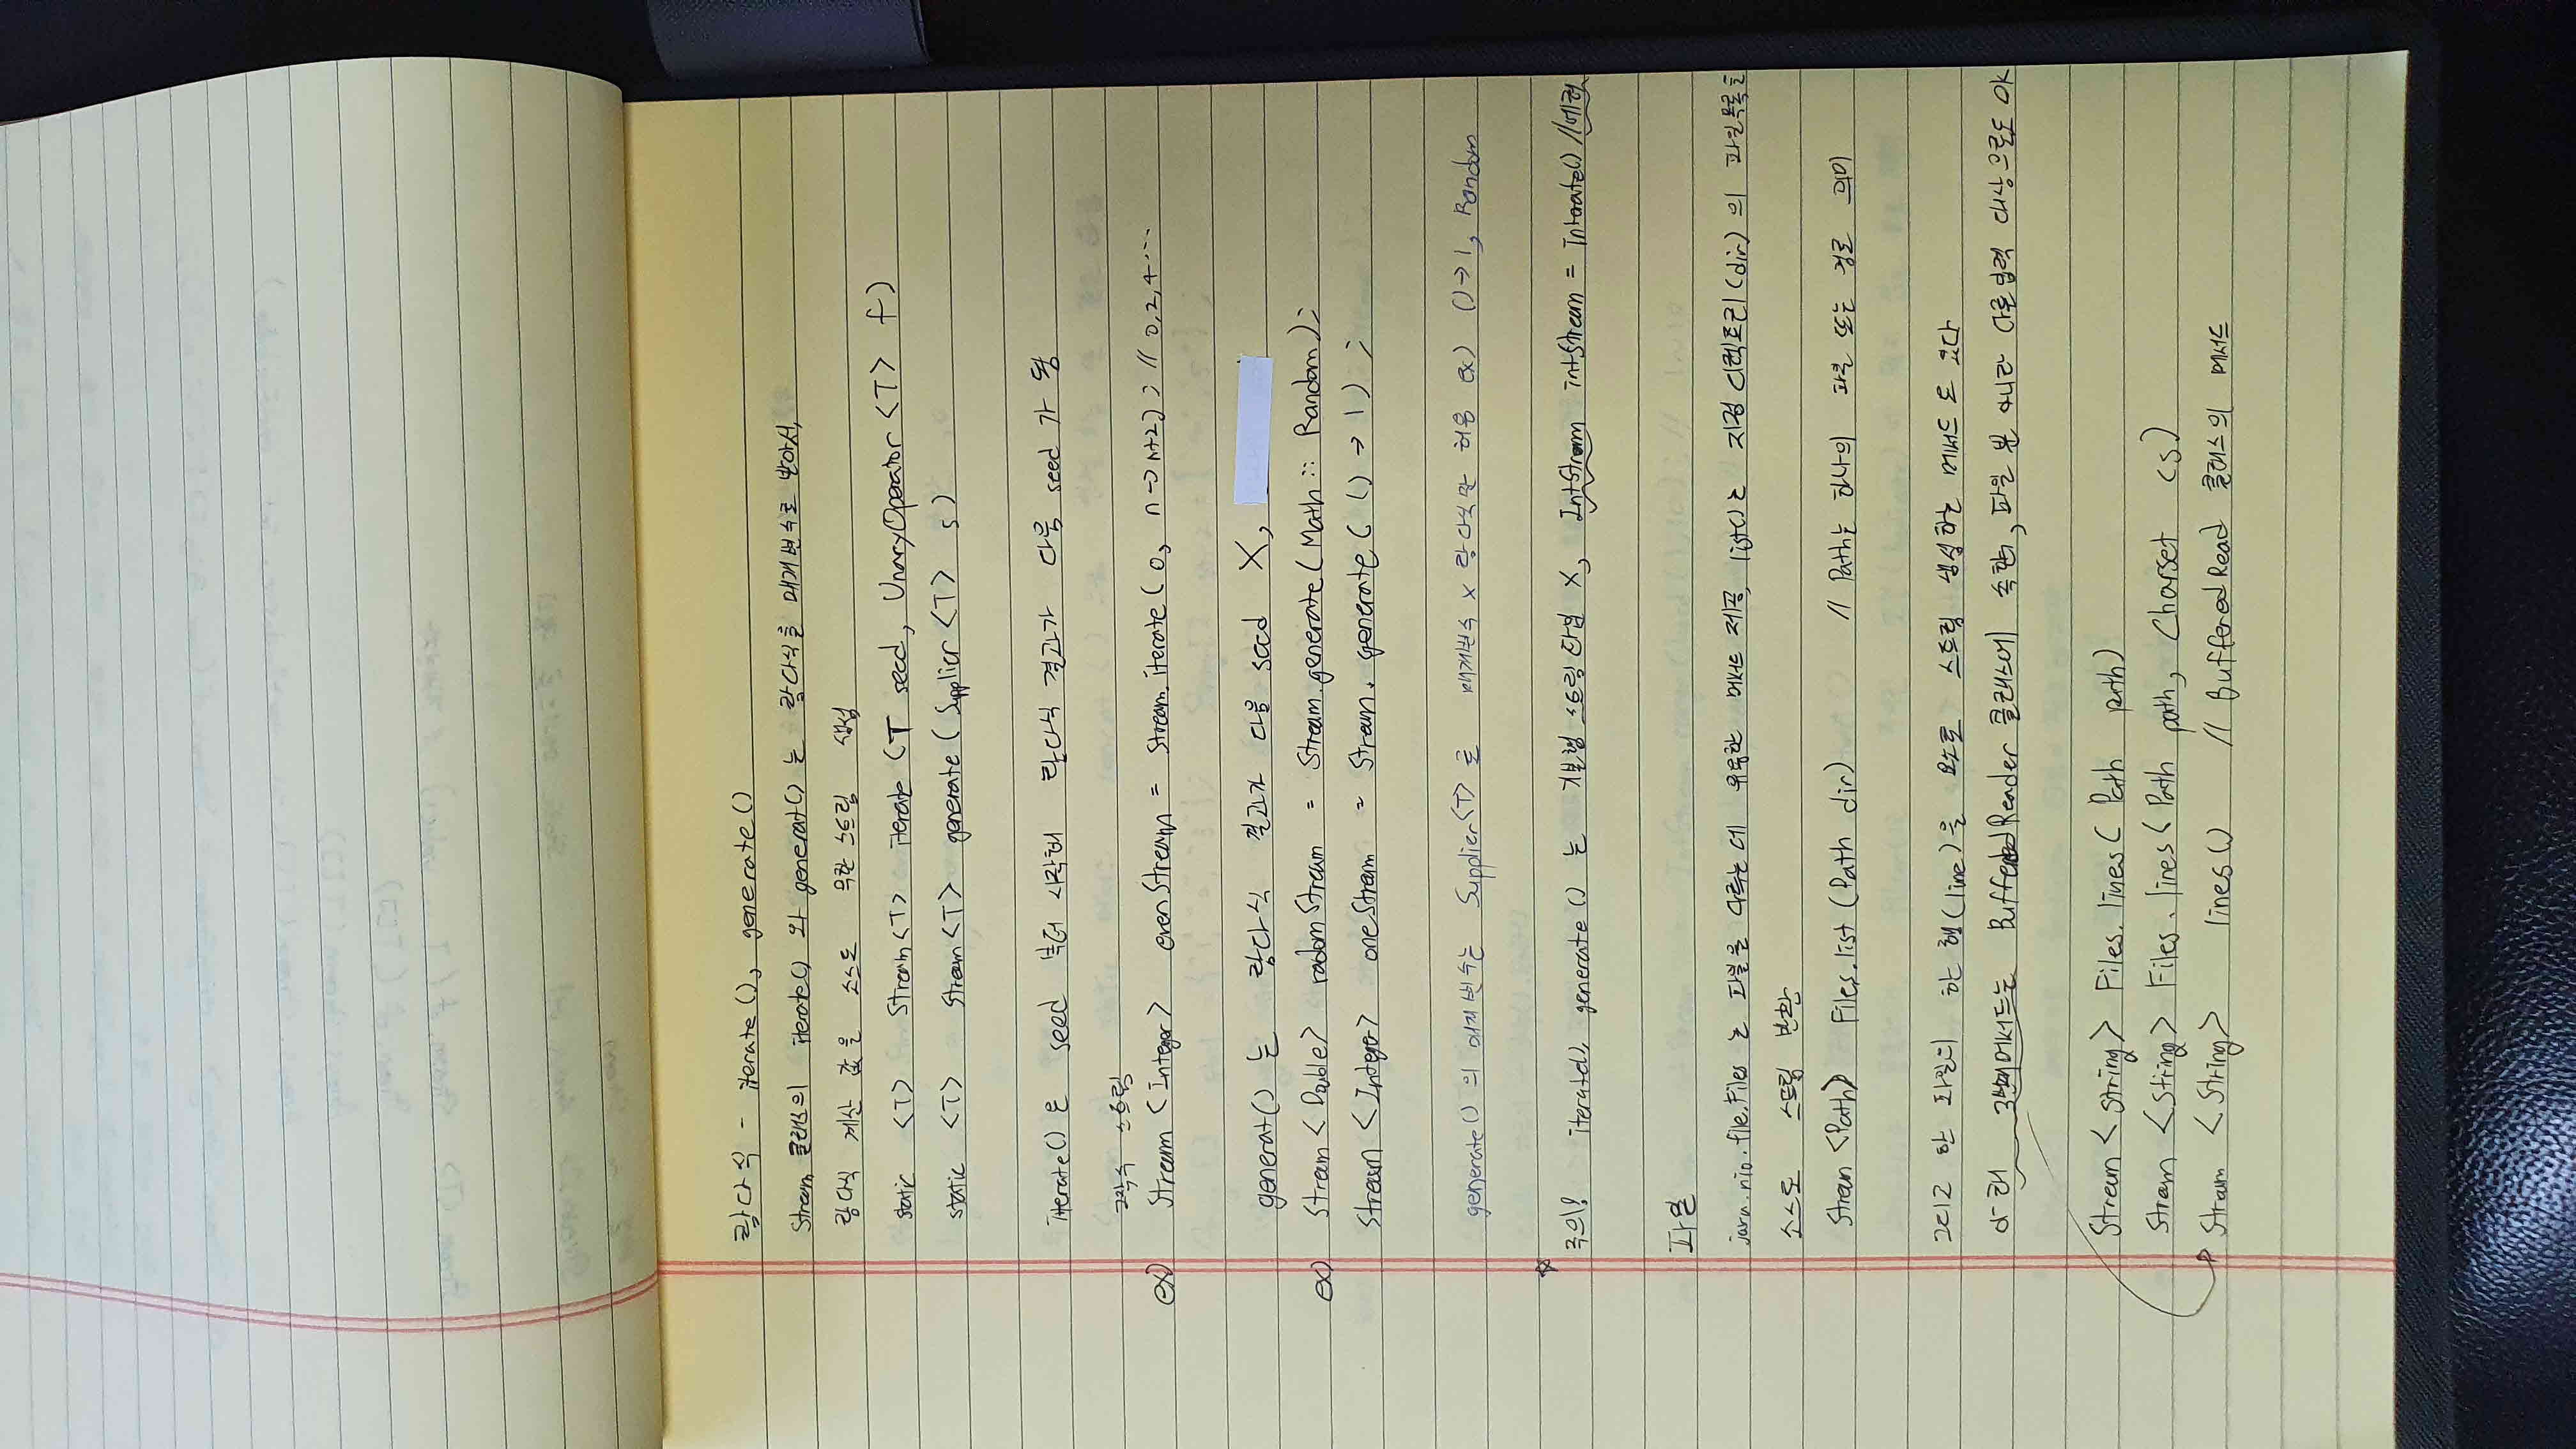 람다식 - iterate(), generate()
Stream 클래스의 iterate() 와 generat() 는 람다식을 매개변수로 받아서,
람다식 계산 값을 소스도 무한 스트림 생성
static <T> Stream<T> iterate (T seed, UnaryOperator <T> f)
static <T> Stream<T> generate ( Supplier <T> s )
iterate() 은 seed 부터 시작해 람다식 결과가 다음 seed 가 됨
그작수 스트림
ex) Stream <Integer> evenStream = Stream.iterate ( 0, n -> n+2) ; // 0,2,4 ...
generat() 는 람다식 결과가 다음 seed X,
ex) Stream < Double> radom Stream = Stream.generate ( Math :: Random ) ;
Stream <Integer> one Stream = Stream. generate ( () → 1 ) ;
generate() 의 매개변수는 Supplier<T> 로 매개변수 x 람다식만 허용 ex) () → 1, Random
☆
주의! iterate(), generate () 는 기본형 스트림 타입 X, IntStream intStream = Interate() //에러
파일
java.nio.file.Files 는 파일을 다루는데 유용한 메서드 제공, list()는 지정 디렉토리(dir) 의 파일목록을
소스로 스트림 반환
Stream <Path> Files.list (Path dir) // Path는 하나의 파일 또는 경로 의미
그리고 한 파일의 한 행(line)을 요소로 스트림 생성하는 메서드 도 있다
아래 3번째메서드는 BufferedReader 클래스에 속한, 파일 뿐 아니라 다른입력 대상으로도 OK
Stream < String > Files. lines ( Path path)
Stream <String> Files. lines ( Path path, Charset cs)
Stream <String> lines () // BufferedRead 클래스의 메서드